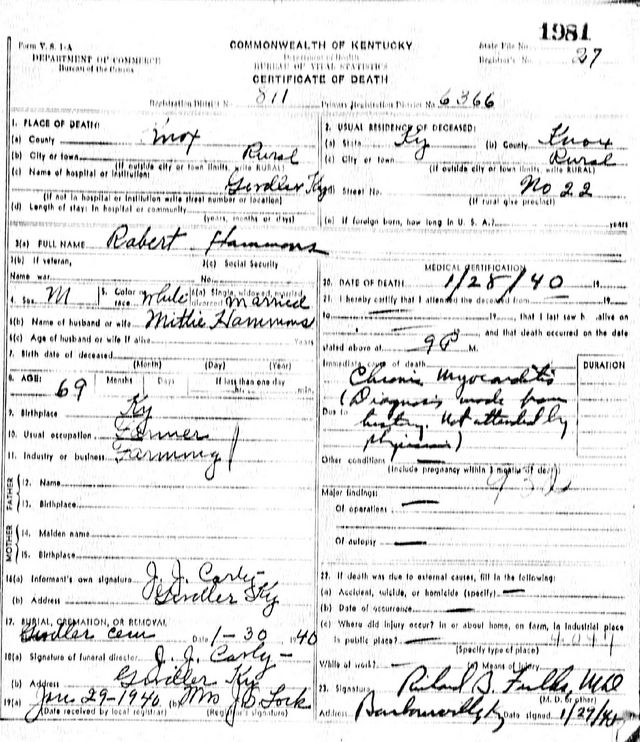 1981
Form V. S. 1-A
COMMONWEALTH OF KENTUCKY
State File No.
DEPARTMENT OF COMMERCE
Department of Health
Registrar's No. 27
Bureau of the Census
BUREAU OF VITAL STATISTICS
CERTIFICATE OF DEATH
Registration District No. 811
Primary Registration District No. 6366
1. PLACE OF DEATH:
(a) County Knox
(b) City or town Rural
(If outside city or town limits, write RURAL)
(c) Name of hospital or institution: Girdler Ky
(If not in hospital or institution write street number or location)
(d) Length of stay: In hospital or community
(years, months or days)
2. USUAL RESIDENCE OF DECEASED:
(a) State Ky (b) County Knox
(c) City or town Rural
(If outside city or town limits, write RURAL)
(d) Street No. No 22
(If rural give precinct)
(e) If foreign born, how long in U. S. A.? years
3(a) FULL NAME Robert Hammons
3(b) If veteran, 3(c) Social Security
Name war No.
4. Sex M 5. Color or race white 6(a) Single, widowed, married, divorced married
6(b) Name of husband or wife Mittie Hammons
6(c) Age of husband or wife if alive years
7. Birth date of deceased
(Month) (Day) (Year)
8. AGE: 69 Months Days If less than one day
hr. min.
9. Birthplace Ky
10. Usual occupation Farmer
11. Industry or business Farming
FATHER
12. Name
13. Birthplace
MOTHER
14. Maiden name
15. Birthplace
16(a) Informant's own signature J. J. Carly
(b) Address Girdler Ky
17. BURIAL, CREMATION, OR REMOVAL
Girdler Cem Date 1-30 1940
18(a) Signature of funeral director J. J. Carly
(b) Address Girdler Ky
19(a) Jan. 29-1940 (b) Mrs J. B. Lock
(Date received by local registrar) (Registrar's signature)
MEDICAL CERTIFICATION
20. DATE OF DEATH 1/28/40 19
21. I hereby certify that I attended the deceased from 19
to 19 , that I last saw h alive on
and that death occurred on the date
stated above at 9 P M.
Immediate cause of death DURATION
Chronic Myocarditis
(Diagnosis made from
Due to history. Not attended by
physician)
Other conditions
(Include pregnancy within 3 months of death)
932
Major findings:
Of operations
Of autopsy
22. If death was due to external causes, fill in the following:
(a) Accident, suicide, or homicide (specify)
(b) Date of occurrence
(c) Where did injury occur? In or about home, on farm, in industrial place
in public place?
(Specify type of place)
While at work? (e) Means of Injury
23. Signature Richard B. Fulks, MD
(M. D. or other)
Address Barbourville, Ky Date signed 1/29/40